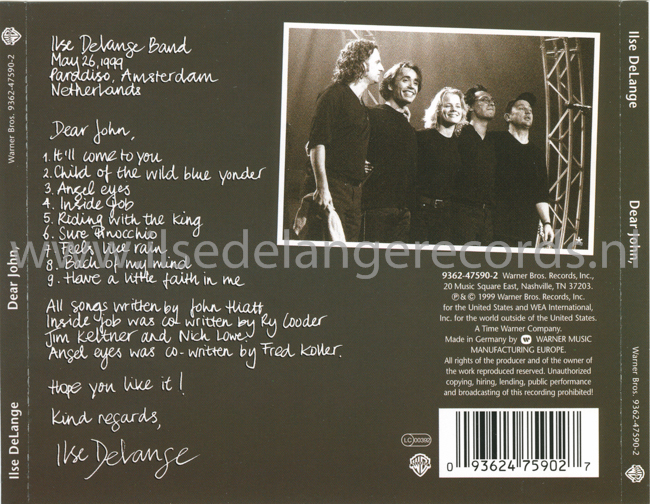 Ilse DeLange Band
May 26, 1999
Paradiso, Amsterdam
Netherlands
Dear John,
1. It'll come to you
2. Child of the wild blue yonder
3. Angel eyes
4. Inside Job
5. Riding with the king
6. Sure Pinocchio
7. Feels like rain
8. Back of my mind
9. Have a little faith in me
All songs written by John Hiatt
Inside Job was co-written by Ry Cooder
Jim Keltner and Nick Lowe
Angel eyes was co-written by Fred Koller.
Hope you like it!
Kind regards,
Ilse DeLange
www.ilsedelangerecords.nl
*
9362-47590-2 Warner Bros. Records, Inc.,
20 Music Square East, Nashville, TN 37203.
℗ & © 1999 Warner Bros. Records, Inc.
for the United States and WEA International,
Inc. for the world outside of the United States.
A Time Warner Company.
Made in Germany by WARNER MUSIC
MANUFACTURING EUROPE.
All rights of the producer and of the owner of
the work reproduced reserved. Unauthorized
copying, hiring, lending, public performance
and broadcasting of this recording prohibited!
LC 00392
0 93624 75902 7
Ilse DeLange
Dear John,
Warner Bros. 9362-47590-2
Ilse DeLange
Dear John,
Warner Bros. 9362-47590-2